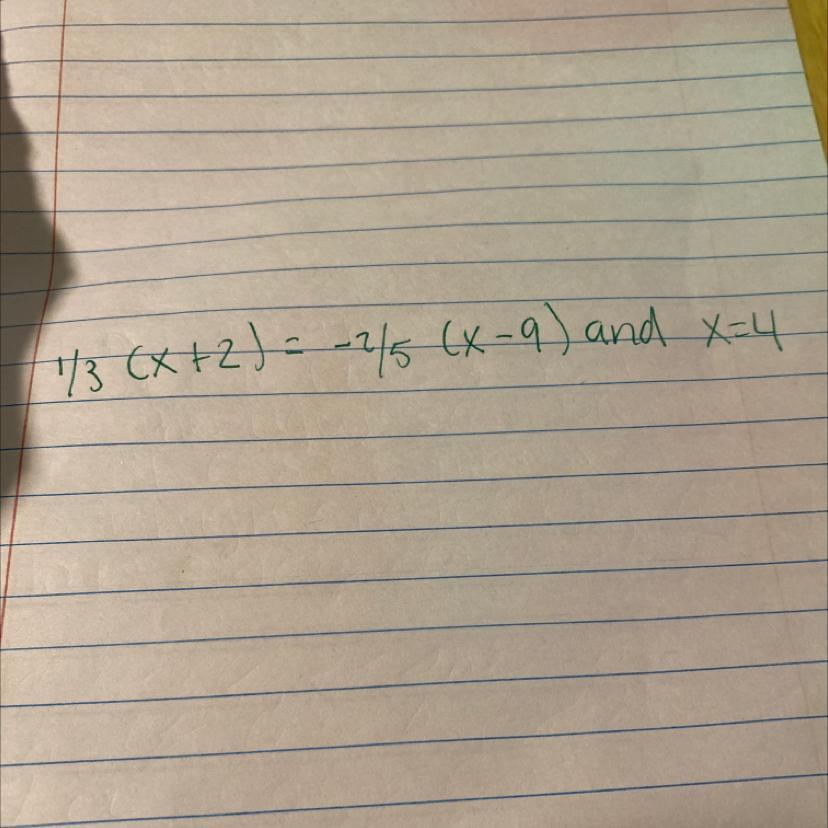 1/3 (x+2) = -2/5 (x-9) and x=4